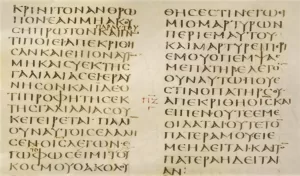 ΚΡΙΝΙΤΟΝΑΝΘΡΩ
ΠΟΝΕΑΝΜΗΑΚΟΥ
CΗΠΡΩΤΟΝ
ΤΙΠΟΙΕΙΑΠΕΚΡΙΘΗ
CΑΝΚΑΙΕΙΠΟΝΑΥΤΩ
ΜΗΚΑΙCΥΕΚΤΗCΓΑ
ΛΙΛΑΙΑCΕΙΕΡΑΥ
ΝΗCΟΝΚΑΙΙΔΕΟ
ΤΙΠΡΟΦΗΤΗCΕΚ
ΤΗCΓΑΛΙΛΑΙΑCΟΥ
ΚΕΓΕΙΡΕΤΑΙΠΑΛΙ
ΟΥΝΑΥΤΟΙCΕΛΑΛΗ
CΕΝΟΙCΛΕΓΩΝ
ΤΟΦΩCΕΙΜΙΤΟΥ
ΚΟCΜΟΥΟΑΚΟΛΟΥ
ΘΗCΕCΤΙΝΕΓΩ
ΕΙΜΙΟΜΑΡΤΥΡΩΝ
ΠΕΡΙΕΜΑΥΤΟΥ
ΚΑΙΜΑΡΤΥΡΕΙΠΕΡΙ
ΕΜΟΥΟΠΕΜΨΑC
ΜΕΠΑΤΗΡΕΛΕΓΟ
ΟΥΝΑΥΤΩΠΟΥΕ
CΤΙΝΟΠΑΤΗΡCΟΥ
ΑΠΕΚΡΙΘΗΟΙCΚΑΙ
ΕΙΠΕΝΟΥΤΕΕΜΕ
ΟΙΔΑΤΑΙΟΥΤΕΤΟ
ΠΑΤΕΡΑΜΟΥΕΙΕ
ΜΕΗΔΕΙΤΑΙΚΑΙΤ
ΠΑΤΕΡΑΗΔΕΙΤΑΙ
ΑΝ·